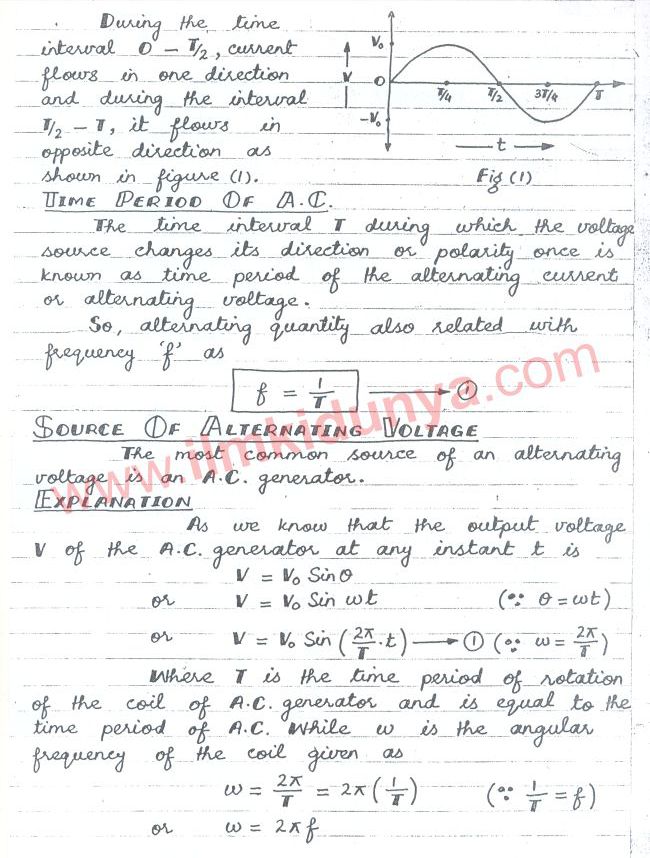 During the time
interval 0 - T/2, current
flows in one direction
and during the interval
T/2 - T, it flows in
opposite direction as
shown in figure (1).
V₀
V
0
-V₀
T/4
T/2
3T/4
T
t
Fig (1)
TIME PERIOD OF A.C.
The time interval T during which the voltage
source changes its direction or polarity once is
known as time period of the alternating current
or alternating voltage.
So, alternating quantity also related with
frequency 'f' as
f = 1/T → ①
SOURCE OF ALTERNATING VOLTAGE
The most common source of an alternating
voltage is an A.C. generator.
EXPLANATION
As we know that the output voltage
V of the A.C. generator at any instant t is
V = V₀ Sin θ
or V = V₀ Sin ωt (∵ θ = ωt)
or V = V₀ Sin (2π/T · t) → ① (∵ ω = 2π/T)
Where T is the time period of rotation
of the coil of A.C. generator and is equal to the
time period of A.C. While ω is the angular
frequency of the coil given as
ω = 2π/T = 2π (1/T) (∵ 1/T = f)
or ω = 2πf
www.ilmkidunya.com